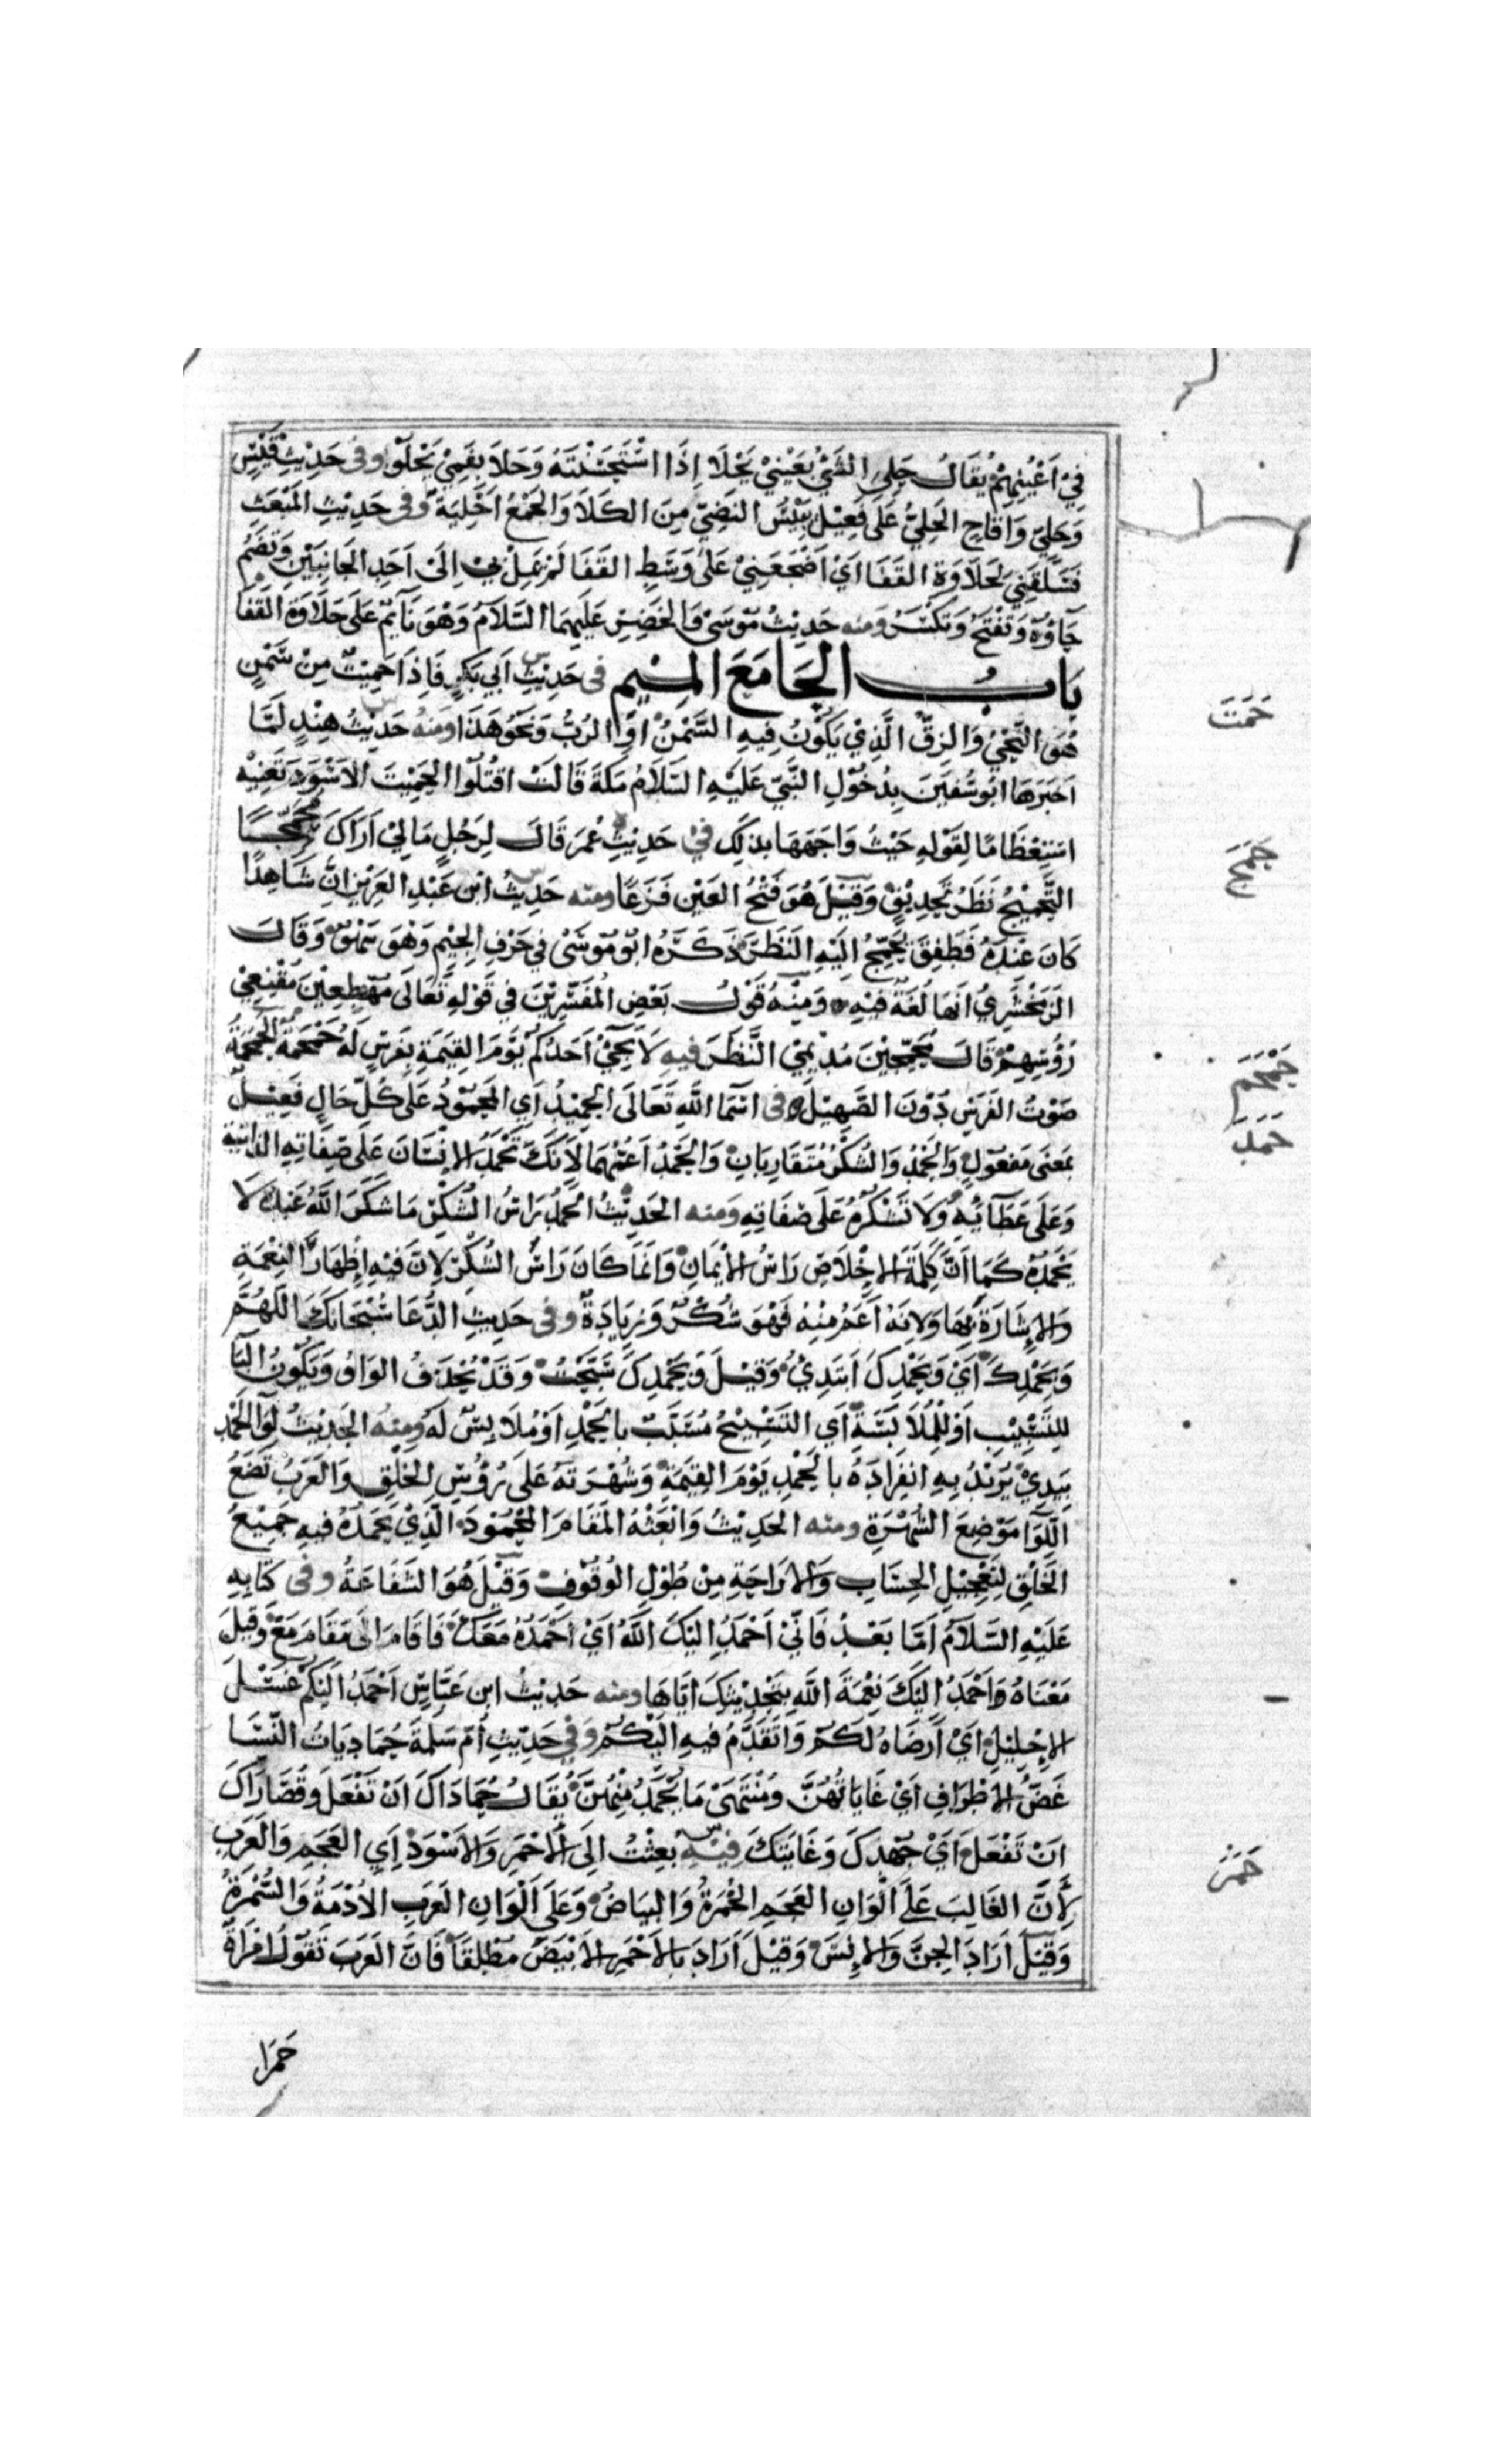 فِي اَعْيُنِهِمْ يُقَالُ حَلِيَ الشَّيْ بِعَيْنِيْ يَحْلَا اِذَا اسْتَحْسَنْتَهُ وَحَلَا بِفَمِيْ يَحْلُوْا وَفى حَدِيْثِ قَيْسٍ
وَحَلِيّ وَاقَاحِ الحَلِيُّ عَلَى فَعِيْل يَبِيْسُ النَّضِيِّ مِنَ الكَلَا وَالجَمْعُ اَحْلِيَة وَفى حَدِيْثِ المَبْعَثِ
فَسَلَقَنِي لِحَلَاوَةِ القَفَا اَيْ اَضْجَعَنِيْ عَلَى وَسَطِ القَفَا لَمْ يَمِلْ بِي اِلَى اَحَدِ الجَانِبَيْنِ وَتُضَمُّ
حَاؤُهُ وَتُفْتَحُ وَتُكْسَرُ وَمنه حَدِيْثُ مُوْسَى وَالخَضِرِ عَلَيْهِمَا السَّلَامُ وَهْوَ نَآئِمٌ عَلَى حَلَاوَةِ القَفَا
بَابُ الحَا مَعَ المِيْمِ فى حَدِيْثِ اَبِي بَكْرٍ فَاِذَا حَمِيْتٌ مِنْ سَمْنٍ
هُوَ النِّحْيُ وَالزِقُّ الَّذِيْ يَكُوْنُ فِيهِ السَّمْنُ اوِ الرُبُّ وَنَحْوُ هَذَا وَمنهُ حَدِيْثُ هِنْدٍ لَمَّا
اَخبَرَهَا ابُو سُفْيَنَ بِدُخُوْلِ النَّبِيِّ عَلَيْهِ السَّلَامُ مَكَّةَ قَالَتْ اقْتُلُوا الحَمِيْتَ الاَسْوَدَ تَعْنِيْهِ
اسْتِعْظَامًا لِقَوْلِهِ حَيْثُ وَاجَهَهَا بذلِكَ فيْ حَدِيْثِ عُمَرَ قَالَ لِرَجُلٍ مَا لِيْ اَرَاكَ مُحَمِّجًا
التَّحْمِيْجُ نَظَرُ تَحْدِيْقٍ وَقِيْلَ هُوَ فَتْحُ العَيْنِ فَزَعًا ومنه حَدِيْثُ ابْنِ عَبْدِ العَزِيْزِ اَنَّ شَاهِدًا
كَانَ عِنْدَهُ فَطَفِقَ يُحَمِّجُ اِلَيْهِ النَظَرَ ذَكَرَهُ ابُوْ مُوْسَى فِي حَرْفِ الجِيْمِ وَهْوَ سَهْوٌ وَقَالَ
الزَمَخْشَرِيُّ اَنَهَا لُغَةٌ فِيْهِ وَمِنْهُ قَوْلُ بَعْضِ المُفَسِّرِيْنَ فِي قَوْلِهِ تَعَالَى مُهْطِعِيْنَ مُقْنِعِيْ
رُؤُسِهِمْ قَالَ مُحَمِّجِيْنَ مُدِيْمِي النَّظَرَ فيهِ لَا يَجِيْ اَحَدُكُمْ يَوْمَ القِيَمَةِ بِفَرَسٍ لَهُ حَمْحَمَةٌ الحَمْحَمَةُ
صَوْتُ الفَرَسِ دُوْنَ الصَّهِيْلِ فى اَسْمَا اللهِ تَعَالَى الحَمِيْدُ اَيِ المَحْمُوْدُ عَلَى كُلِّ حَالٍ فَعِيْلٌ
بمَعْنَى مَفْعُوْلٍ وَالحَمْدُ وَالشُكْرُ مُتَقَارِبَانِ وَالحَمْدُ اَعَمُّهُمَا لِاَنَكَ تَحْمَدُ الاِنْسَانَ عَلَى صِفَاتِهِ الذَاتِيَّة
وَعَلَى عَطَآئِهِ وَلَا تَشْكُرُهُ عَلَى صِفَاتِهِ وَمنه الحَدِيْثُ الحَمْدُ رَاسُ الشُكْرِ مَا شَكَرَ اللهَ عَبْدٌ لَا
يَحْمَدُهُ كَمَا اَنَّ كَلِمَةَ الاِخْلَاصِ رَاسُ الاِيْمَانِ وَاِنَّمَا كَانَ رَاسُ الشُكْرِ لِاَنَّ فيْهِ اِظْهَارَ النِعْمَةِ
وَالاِشَارَةَ بِهَا وَلِانَهُ اَعَمُّ مِنْهُ فَهْوَ شُكْرٌ وَزِيَادَةٌ وَفى حَدِيْثِ الدُّعَا سُبْحَانَكَ اللهُمَّ
وَبِحَمْدِكَ اَيْ وَبِحَمْدِكَ اَبْتَدِئُ وَقِيْلَ وَبِحَمْدِكَ سَبَّحْتُ وَقَدْ تُحْذَفُ الوَاوُ وَتَكُوْنُ البَا
لِلتَسْبِيْبِ اَوْ لِلْمُلَابَسَةِ اَيِ التَسْبِيْحُ مُسَبَّبٌ بِالحَمْدِ اَوْ مُلَابِسٌ لَهُ وَمِنْهُ الحَدِيْثُ لِوَآ الحَمْدِ
بِيَدِيْ يُرِيْدُ بِهِ انْفِرَادَهُ بِالحَمْدِ يَوْمَ القِيَمَةِ وَشُهْرَتَهُ عَلَى رُؤُسِ الخَلْقِ وَالعَرَبُ تَضَعُ
اللِّوَآ مَوْضِعَ الشُهْرَةِ ومنه الحَدِيْثُ وَابْعَثْهُ المَقَامَ المَحْمُوْدَ الَّذِيْ يَحْمَدُهُ فيهِ جَمِيْعُ
الخَلْقِ لِتَعْجِيْلِ الحِسَابِ وَالاِرَاحَةِ مِنْ طُوْلِ الوُقُوْفِ وَقِيْلَ هُوَ الشَّفَاعَةُ وَفى كِتَابِهِ
عَلَيْهِ السَّلَامُ اَمَّا بَعْدُ فَاِنِّيْ اَحْمَدُ اِلَيْكَ اللهَ اَيْ اَحْمَدُهُ مَعَكَ فَاَقَامَ اِلَى مَقَامَ مَعَ وَقِيلَ
مَعْنَاهُ وَاَحْمَدُ اِلَيْكَ نِعْمَةَ اللهِ بِتَحْدِيْثِكَ اِيَّاهَا ومنه حَدِيْثُ ابنِ عَبَّاسٍ اَحْمَدُ اِلَيْكُمْ غَسْلَ
الاِحْلِيْلِ اَيْ اَرْضَاهُ لَكُمْ وَاَتَقَدَّمُ فيهِ اِلَيْكُمْ وَفي حَدِيْثِ اُمِّ سَلَمَةَ حُمَادَيَاتُ النِّسَا
غَضُّ الاَطْرَافِ اَيْ غَايَاتُهُنَّ وَمُنْتَهَى مَا يُحْمَدُ مِنْهُنَّ يُقَالُ حُمَادَاكَ اَنْ تَفْعَلَ وَقُصَارَاكَ
اَنْ تَفْعَلَ اَيْ جُهْدُكَ وَغَايَتُكَ فِيْهِ بُعِثْتُ اِلَى الاَحْمَرِ وَالاَسْوَدِ اَيِ العَجَمِ وَالعَرَبِ
لِاَنَّ الغَالِبَ عَلَى اَلْوَانِ العَجَمِ الحُمْرَةُ وَالبَيَاضُ وَعَلَى اَلْوَانِ العَرَبِ الاُدْمَةُ وَالسُّمْرَةُ
وَقِيْلَ اَرَادَ الجِنَّ وَالاِنْسَ وَقِيْلَ اَرَادَ بِالاَحْمَرِ الاَبْيَضَ مُطْلَقًا فَاِنَّ العَرَبَ تَقُوْلُ امْرَاَةٌ
حَمْرَا
حَمَتَ
حَمَجَ
حَمْحَمَ
حَمَدَ
حَمَرَ